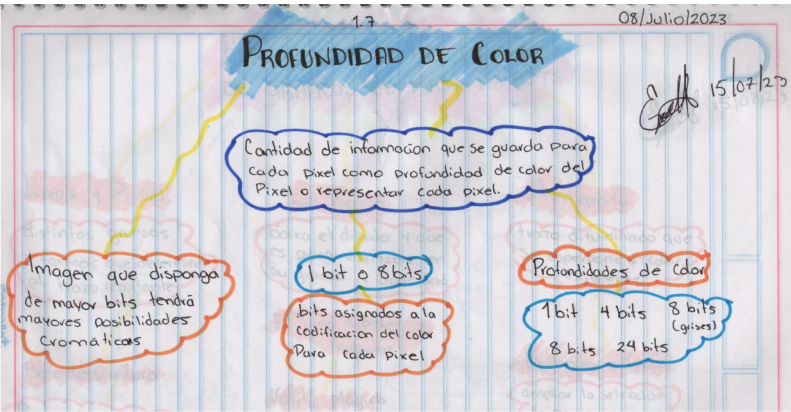 1.7
08/Julio/2023
PROFUNDIDAD DE COLOR
15/07/23
Cantidad de informacion que se guarda para
cada pixel como profundidad de color del
Pixel o representar cada pixel.
Imagen que disponga
de mayor bits tendrá
mayores posibilidades
cromáticas
1 bit o 8 bits
bits asignados a la
codificacion del color
Para cada pixel
Profundidades de color
1 bit 4 bits 8 bits
(grises)
8 bits 24 bits
ampliar la seleccion